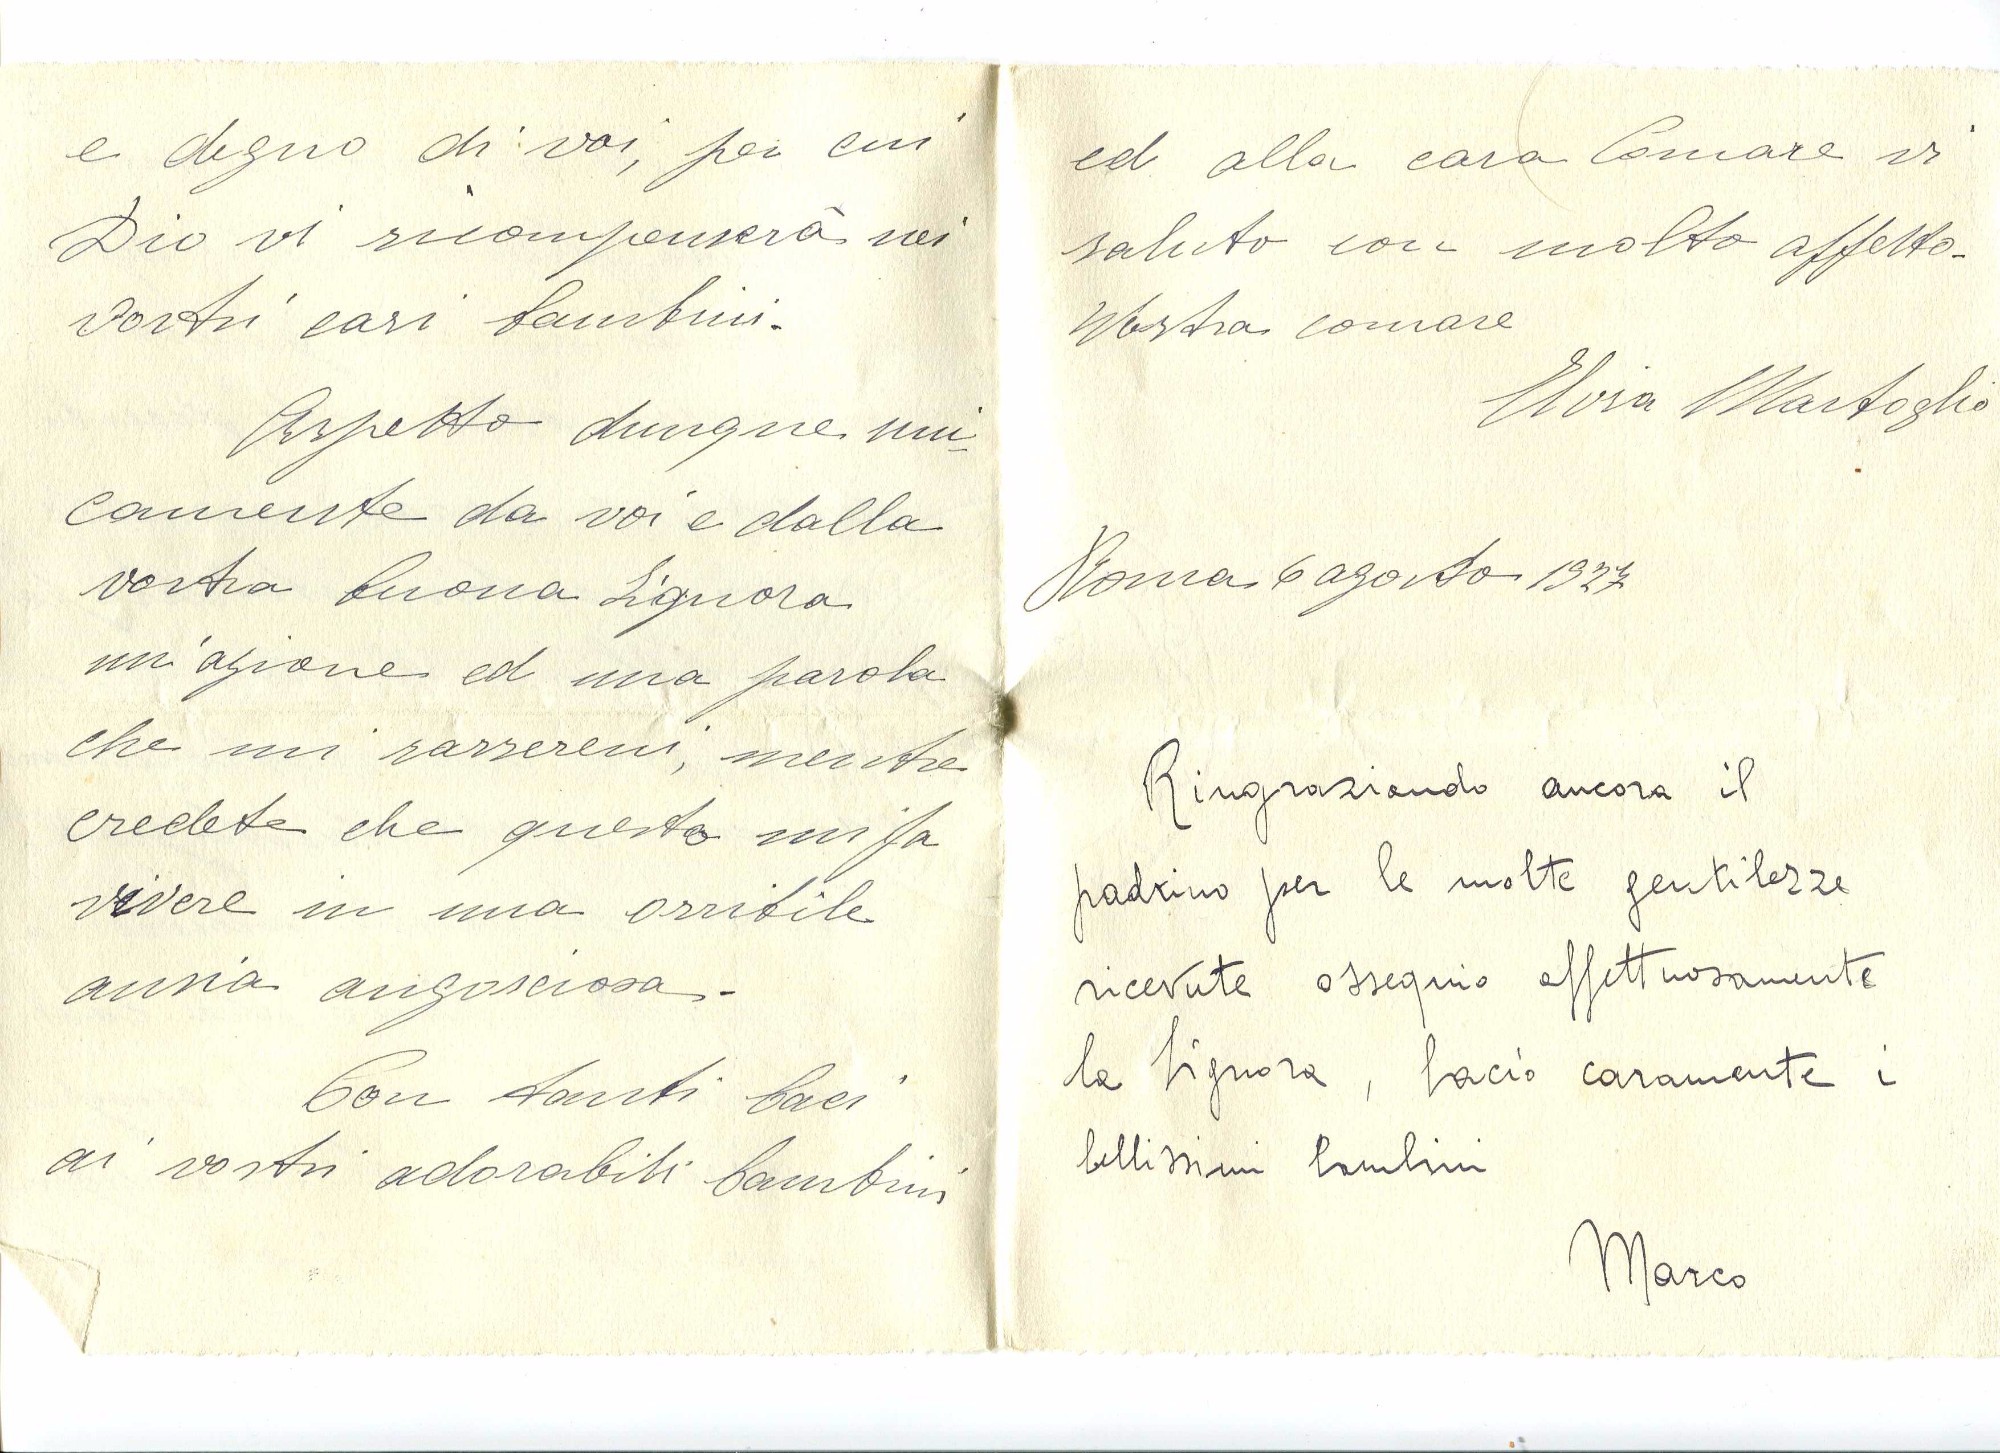 e degno di voi, per cui
Dio vi ricompenserà nei
vostri cari bambini.
Aspetto dunque uni-
camente da voi e dalla
vostra buona Signora
un'azione ed una parola
che mi rassereni, mentre
credete che questo mi fa
vivere in una orribile
ansia angosciosa.-
Con tanti baci
ai vostri adorabili bambini
ed alla cara Comare vi
saluto con molto affetto-
Vostra comare
Elvira Martoglio
Roma 6 agosto 1927
Ringraziando ancora il
padrino per le molte gentilezze
ricevute ossequio affettuosamente
la Signora, bacio caramente i
bellissimi bambini
Marco